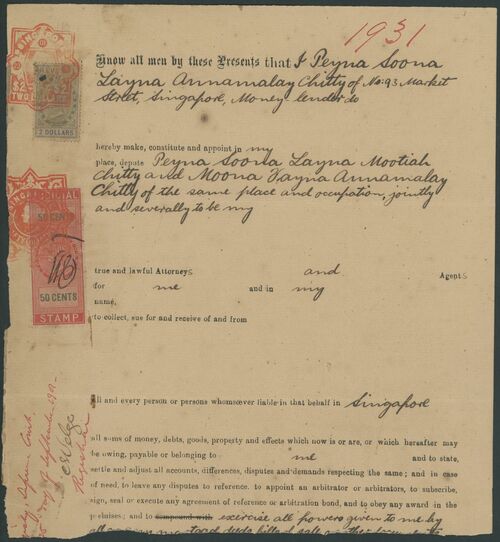 1931
Know all men by these Presents that I Peyna Soona
Layna Annamalay Chitty of No: 93 Market
Street, Singapore, Money-lender do
2 DOLLARS
hereby make, constitute and appoint in my
place, depute Peyna Soona Layna Mootiah
Chitty and Moona Layna Annamalay
Chitty of the same place and occupation, jointly
and severally to be my
50 CENTS
50 CENTS
STAMP
true and lawful Attorneys and Agents
for me and in my
name,
to collect, sue for and receive of and from
all and every person or persons whomsoever liable in that behalf in Singapore
all sums of money, debts, goods, property and effects which now is or are, or which hereafter may
be owing, payable or belonging to me and to state,
settle and adjust all accounts, differences, disputes and demands respecting the same; and in case
of need, to leave any disputes to reference. to appoint an arbitrator or arbitrators, to subscribe,
sign, seal or execute any agreement of reference or arbitration bond, and to obey any award in the
premises; and to compound with exercise all powers given to me by
Registrar